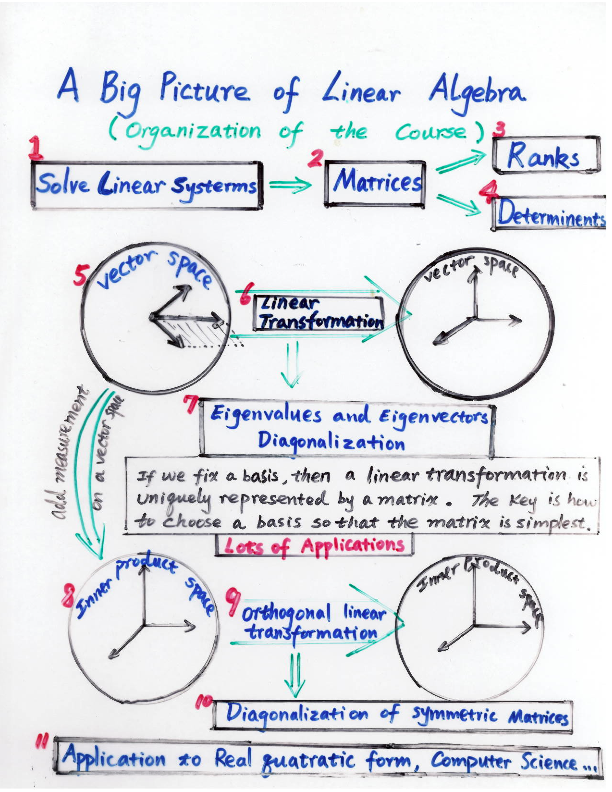 A Big Picture of Linear Algebra
(Organization of the Course)
1
Solve Linear Systerms
2
Matrices
3
Ranks
4
Determinents
5
vector space
6
Linear
Transformation
vector space
7
Eigenvalues and Eigenvectors
Diagonalization
If we fix a basis, then a linear transformation is
uniquely represented by a matrix. The Key is how
to choose a basis so that the matrix is simplest.
Lots of Applications
add measurement
on a vector space
8
Inner product space
9
Orthogonal linear
transformation
Inner Product space
10
Diagonalization of symmetric Matrices
11
Application to Real quatratic form, Computer Science ...